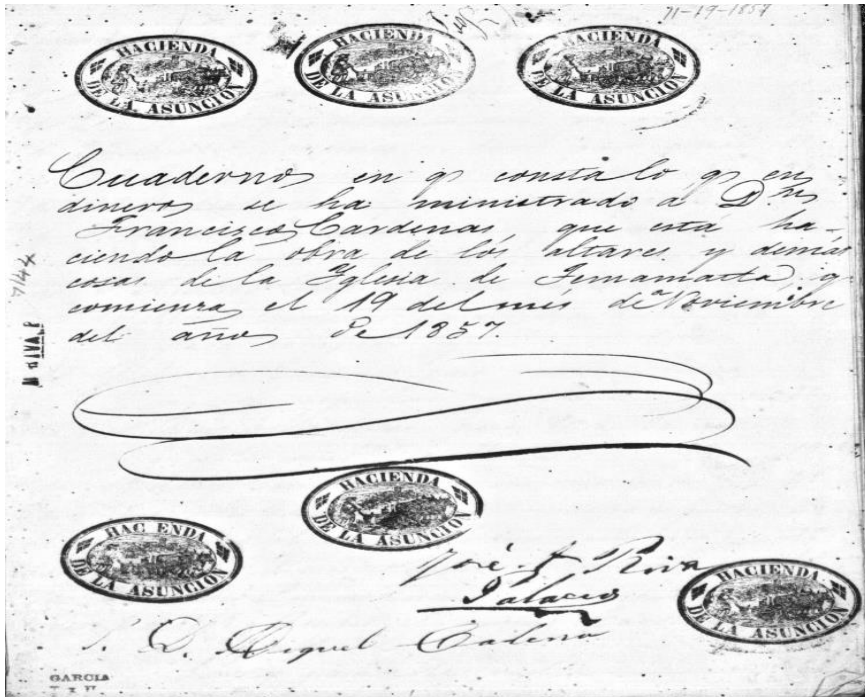 11-19-1857
HACIENDA
DE LA ASUNCION
HACIENDA
DE LA ASUNCION
HACIENDA
DE LA ASUNCION
Cuaderno en q consta lo q en
dinero se ha ministrado a Dn
Francisco Cardenas, que está ha-
ciendo la obra de los altares y demás
cosas de la Yglesia de Temamatla, q
comienza el 19 del mes de Noviembre
del año de 1857.
HACIENDA
DE LA ASUNCION
HAC ENDA
DE LA ASUNCION
José J. Riva
Palacio
HACIENDA
DE LA ASUNCION
S. D. Miguel
GARCIA